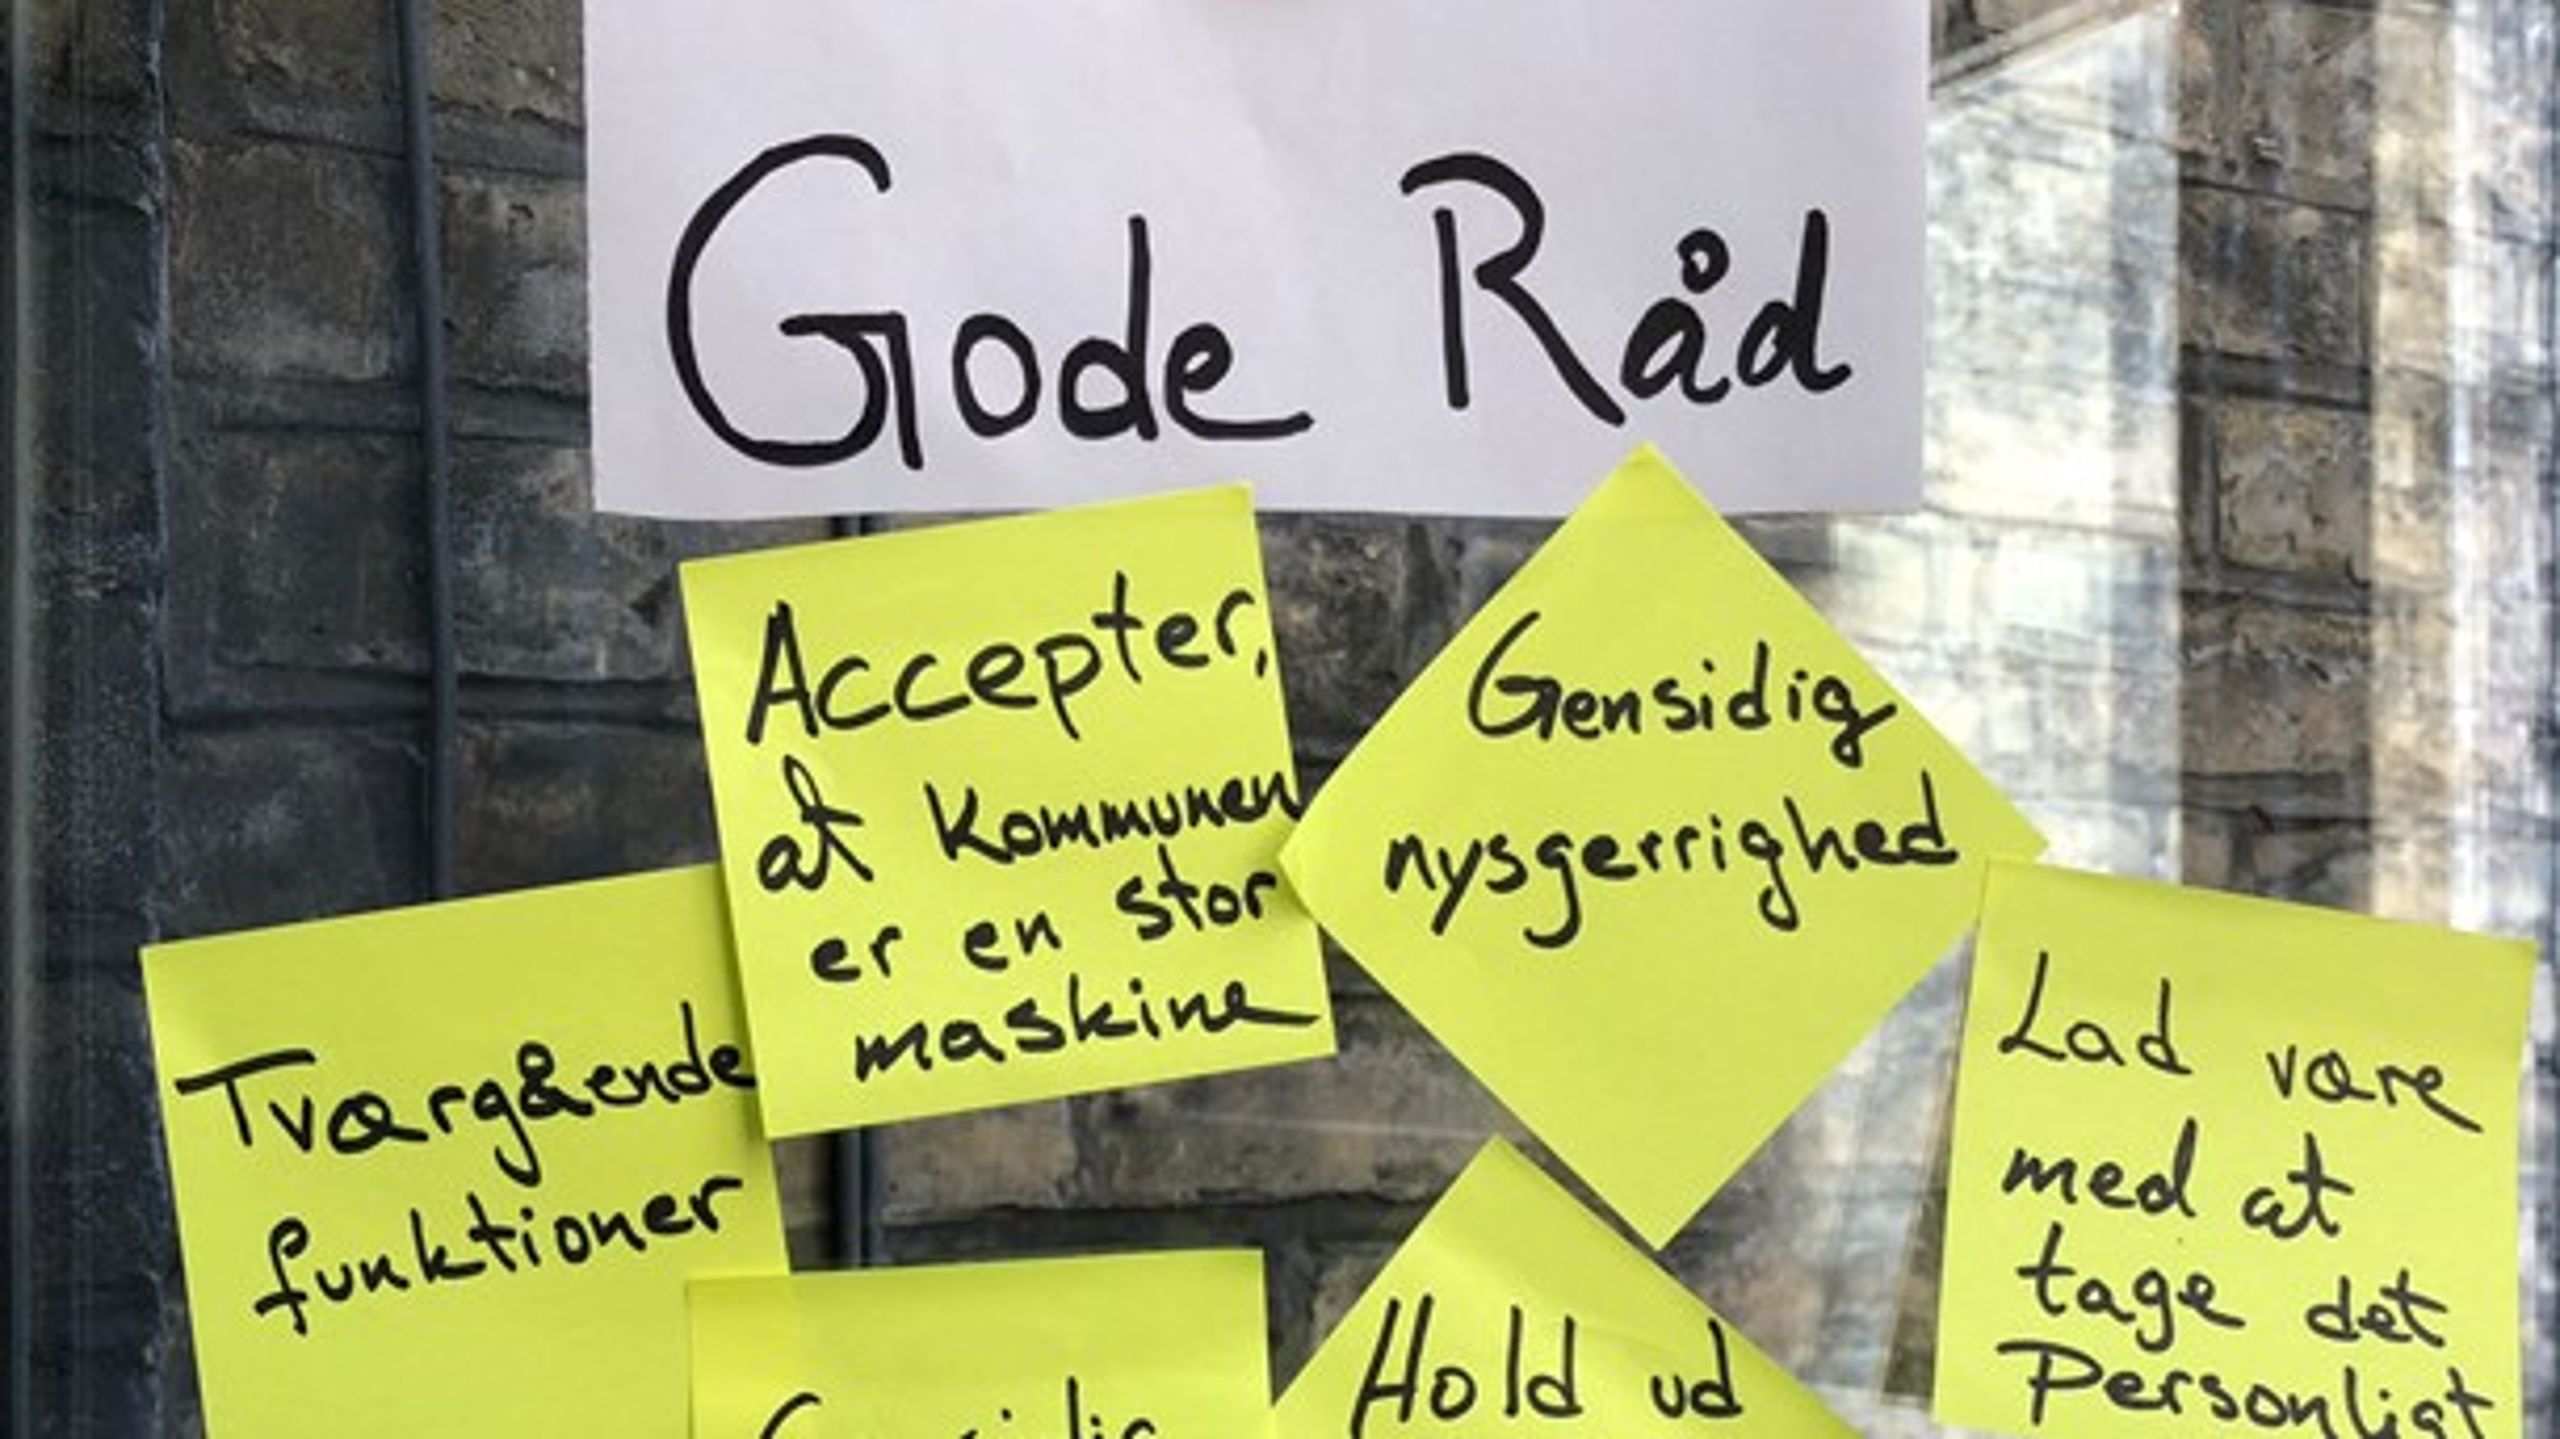 Gode Råd
Accepter,
at kommunen
er en stor
maskine
Gensidig
nysgerrighed
Tværgående
funktioner
Lad være
med at
tage det
Personligt
Hold ud